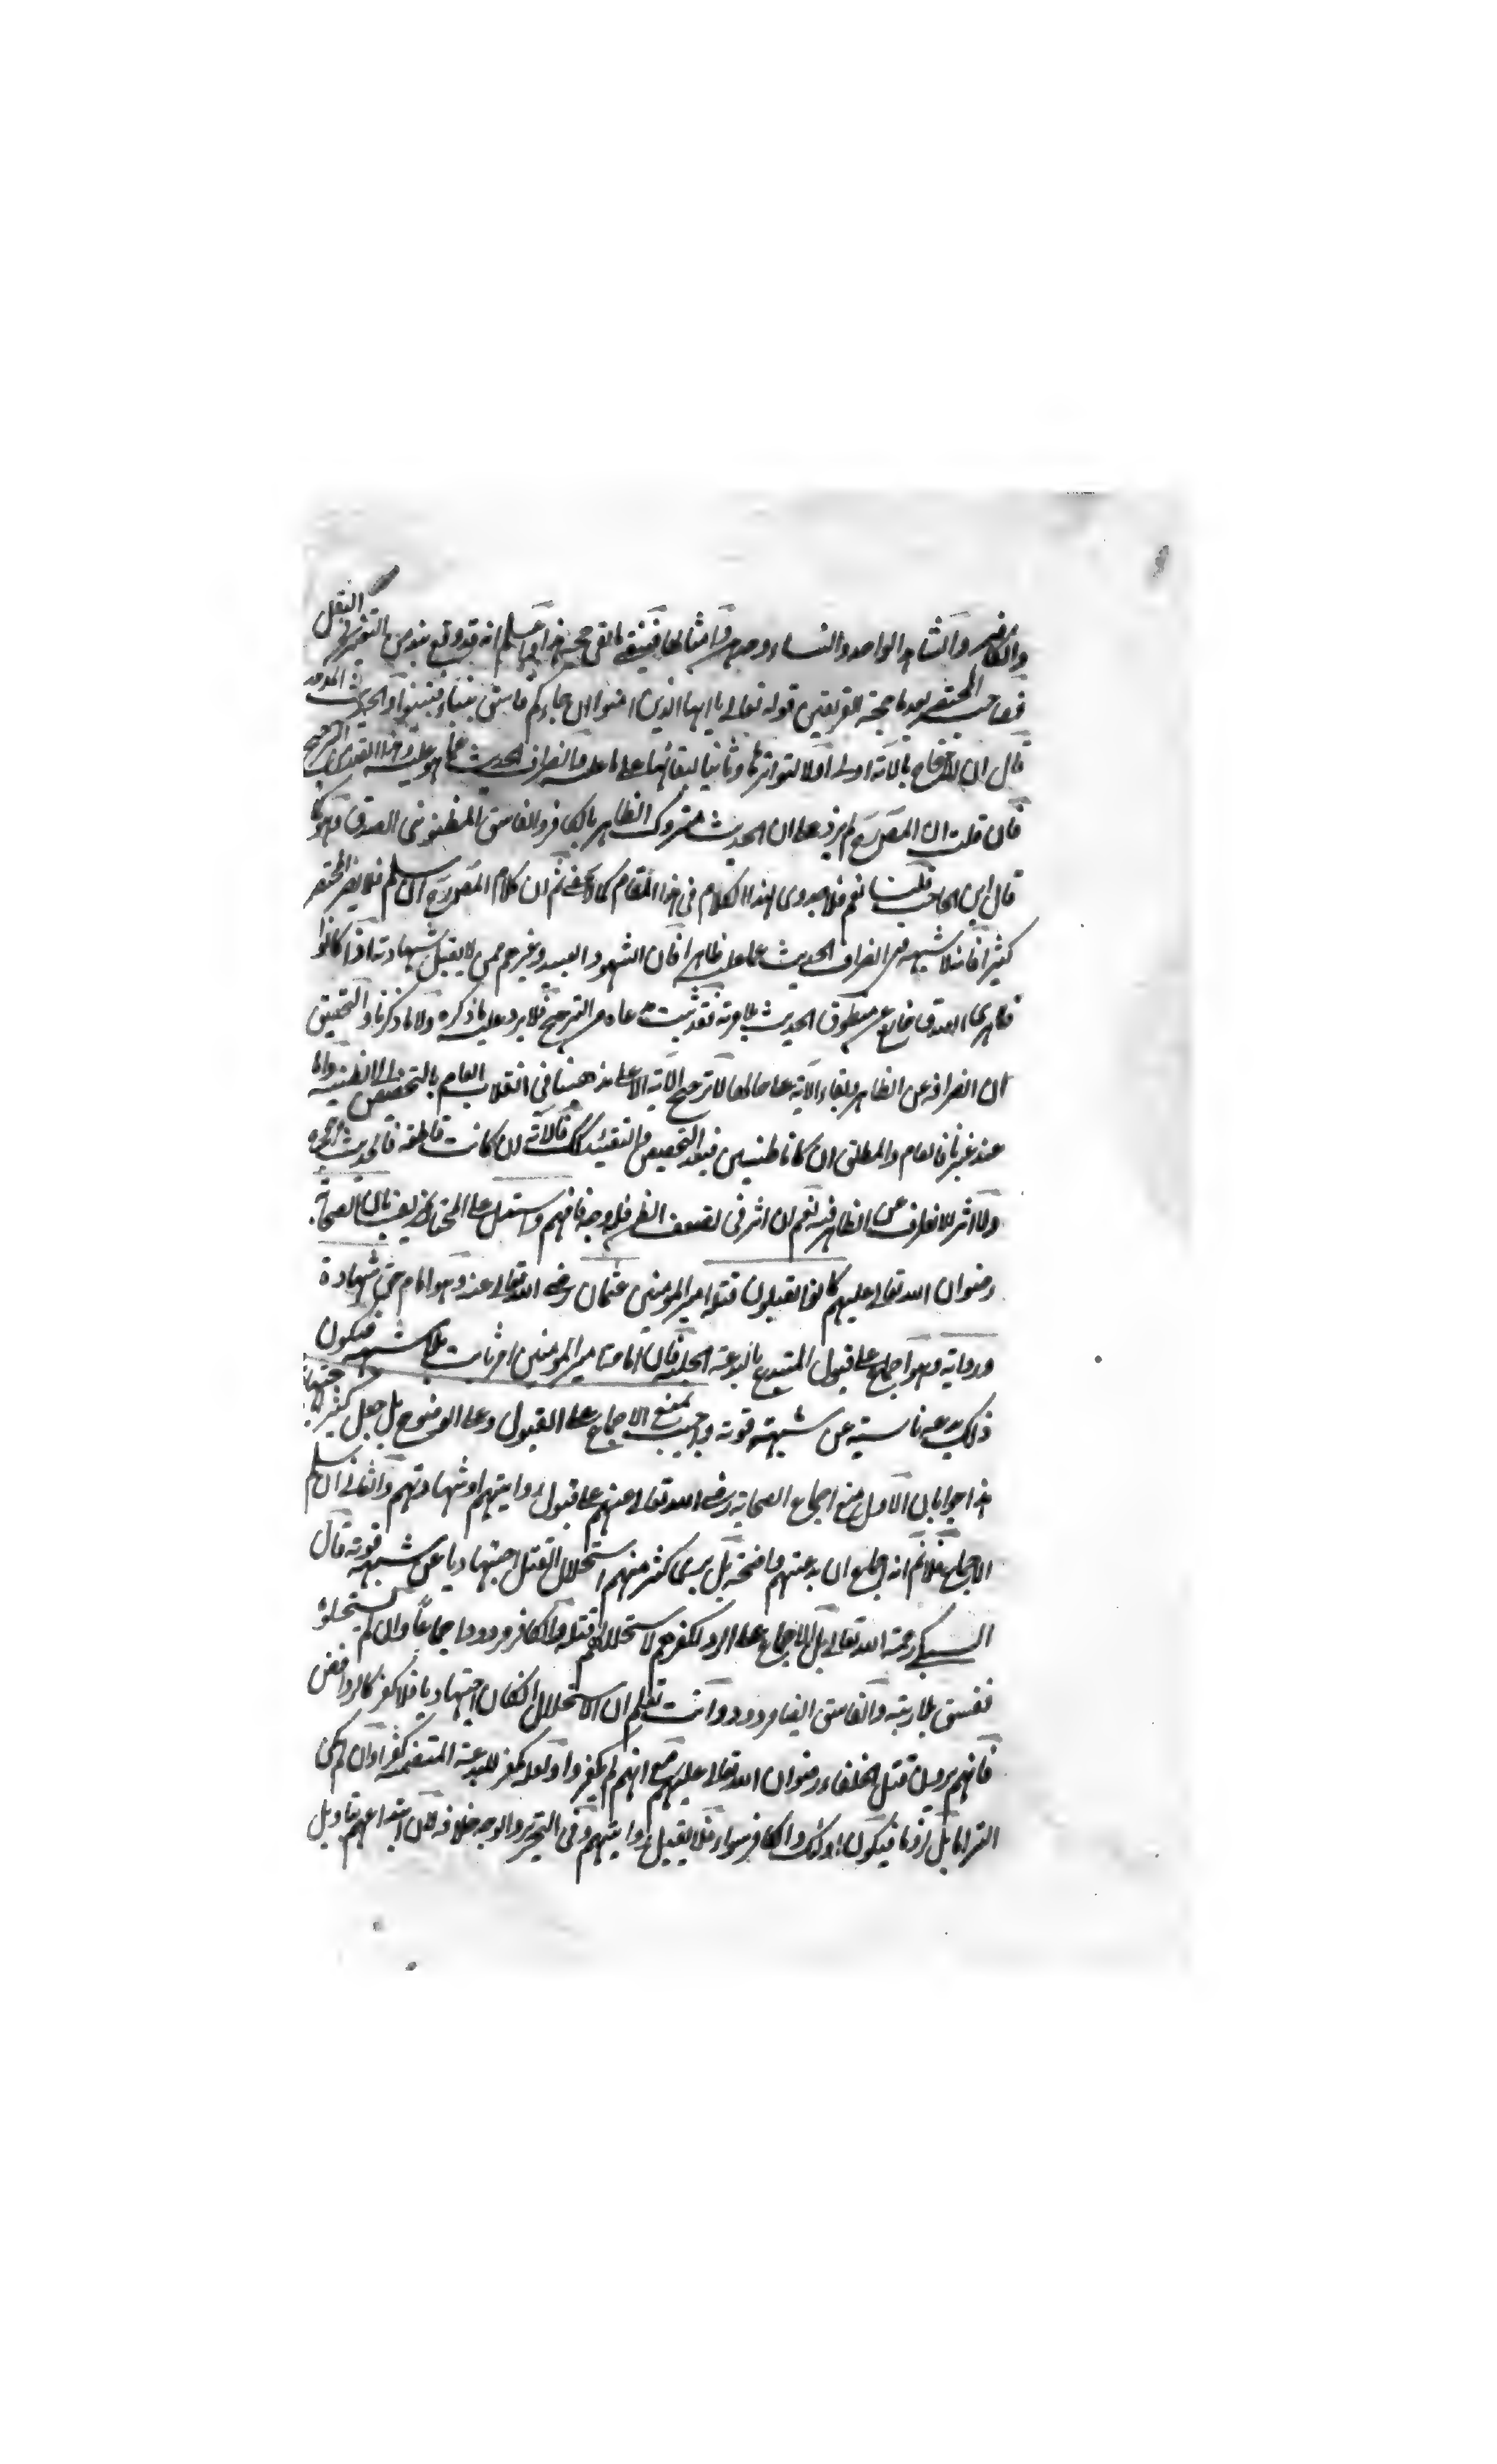 والكافر والشاهد الواحد والنساء وحدهن وامثالها فيبقى ما بقى حجة هذا واعلم انه قد وقع نبو من التغير فى النقل
فصاحب المختصر بعد ما حجة الفريقين قوله تعالى يا ايها الذين امنوا ان جاءكم فاسق بنباء فتبينوا والحديث المذكور
قال ان الاحتجاج بالآية اولى اولا لتواترها وثانيا لبقائها على ما عليه وانصراف الحديث عما هو عليه وهذا القدر الترجيح
فان قلت ان المصرح لم يزد على ان الحديث متروك الظاهر بالكافر والفاسق المظنونى الصدق وهو كما
قال ابن الحاجب قلت نعم فلا جدوى لهذا الكلام فى هذا المقام كما لا يخفى ثم ان كلام المصرح ان سلم فلا يضر المختصر
كثيرا فانه لا شبهة فى انصراف الحديث عما عليه ظاهرا فان الشهود العبيد وغيرهم ممن لا يقبل شهادته اذا كانوا
ظاهرى الصدق خارج عن منطوق الحديث بلا مرية فقد ثبت مدعاه من الترجيح فلا يرد عليه ما ذكره ولا ما ذكرنا والتحقيق
ان انصرافه عن الظاهر وبقاء الآية على حالها لا ترجيح الآية الا على مذهبنا فى انقلاب العام بالتخصيص الى الظنية واما
عند غيرنا فالعام والمطلق ان كانا ظنيين فبعد التخصيص والتقييد كذلك فالآية ان كانت قاطعة فالحديث
ولا اثر للانصراف عن الظاهر فيه نعم ان اثر فى تضعيف الظن فله وجه فافهم واستدل على المختار بان الصحابة
رضوان الله تعالى عليهم كانوا يقبلون قتلة امير المؤمنين عثمان رضى الله تعالى عنه وهو امام حق شهادة
ورواية وهو اجماع على قبول المبتدع بالبدعة الجلية فان امامة امير المؤمنين امر ثابت بلا شبهة فيكون
ذلك بدعة ناشية عن شبهة قوية واجيب بمنع الاجماع على القبول وعلى الوضوح بل جعل كثير اجتهاديا
هذا جوابان الاول منع اجماع الصحابة رضى الله تعالى عنهم على قبول روايتهم او شهادتهم والثانى ان سلم
الاجماع فلا نم انه اجماع ان بدعتهم واضحة بل يرى كثير منهم استحلال القتل اجتهاديا عن شبهة قوية قال
السبكى رحمة الله تعالى بل الاجماع على الرد لكفرهم لاستحلالهم قتله والكافر مردود اجماعا وان لم يستحلوا
ففسق بلا ريبة والفاسق ايضا مردود وانت تعلم ان الاستحلال ان كان اجتهاديا فلا كفر كالروافض
فانهم يرون قتل الخلفاء رضوان الله تعالى عليهم مع انهم لم يكفروا ولعله كفر للبدعة المتضمنة كفرا وان لم يكن
التزاما بل لزوما فيكون اولئك والكافر سواء فلا يقبل روايتهم وفى التحرير والوجه خلافه لان ابتداعهم بتاويل